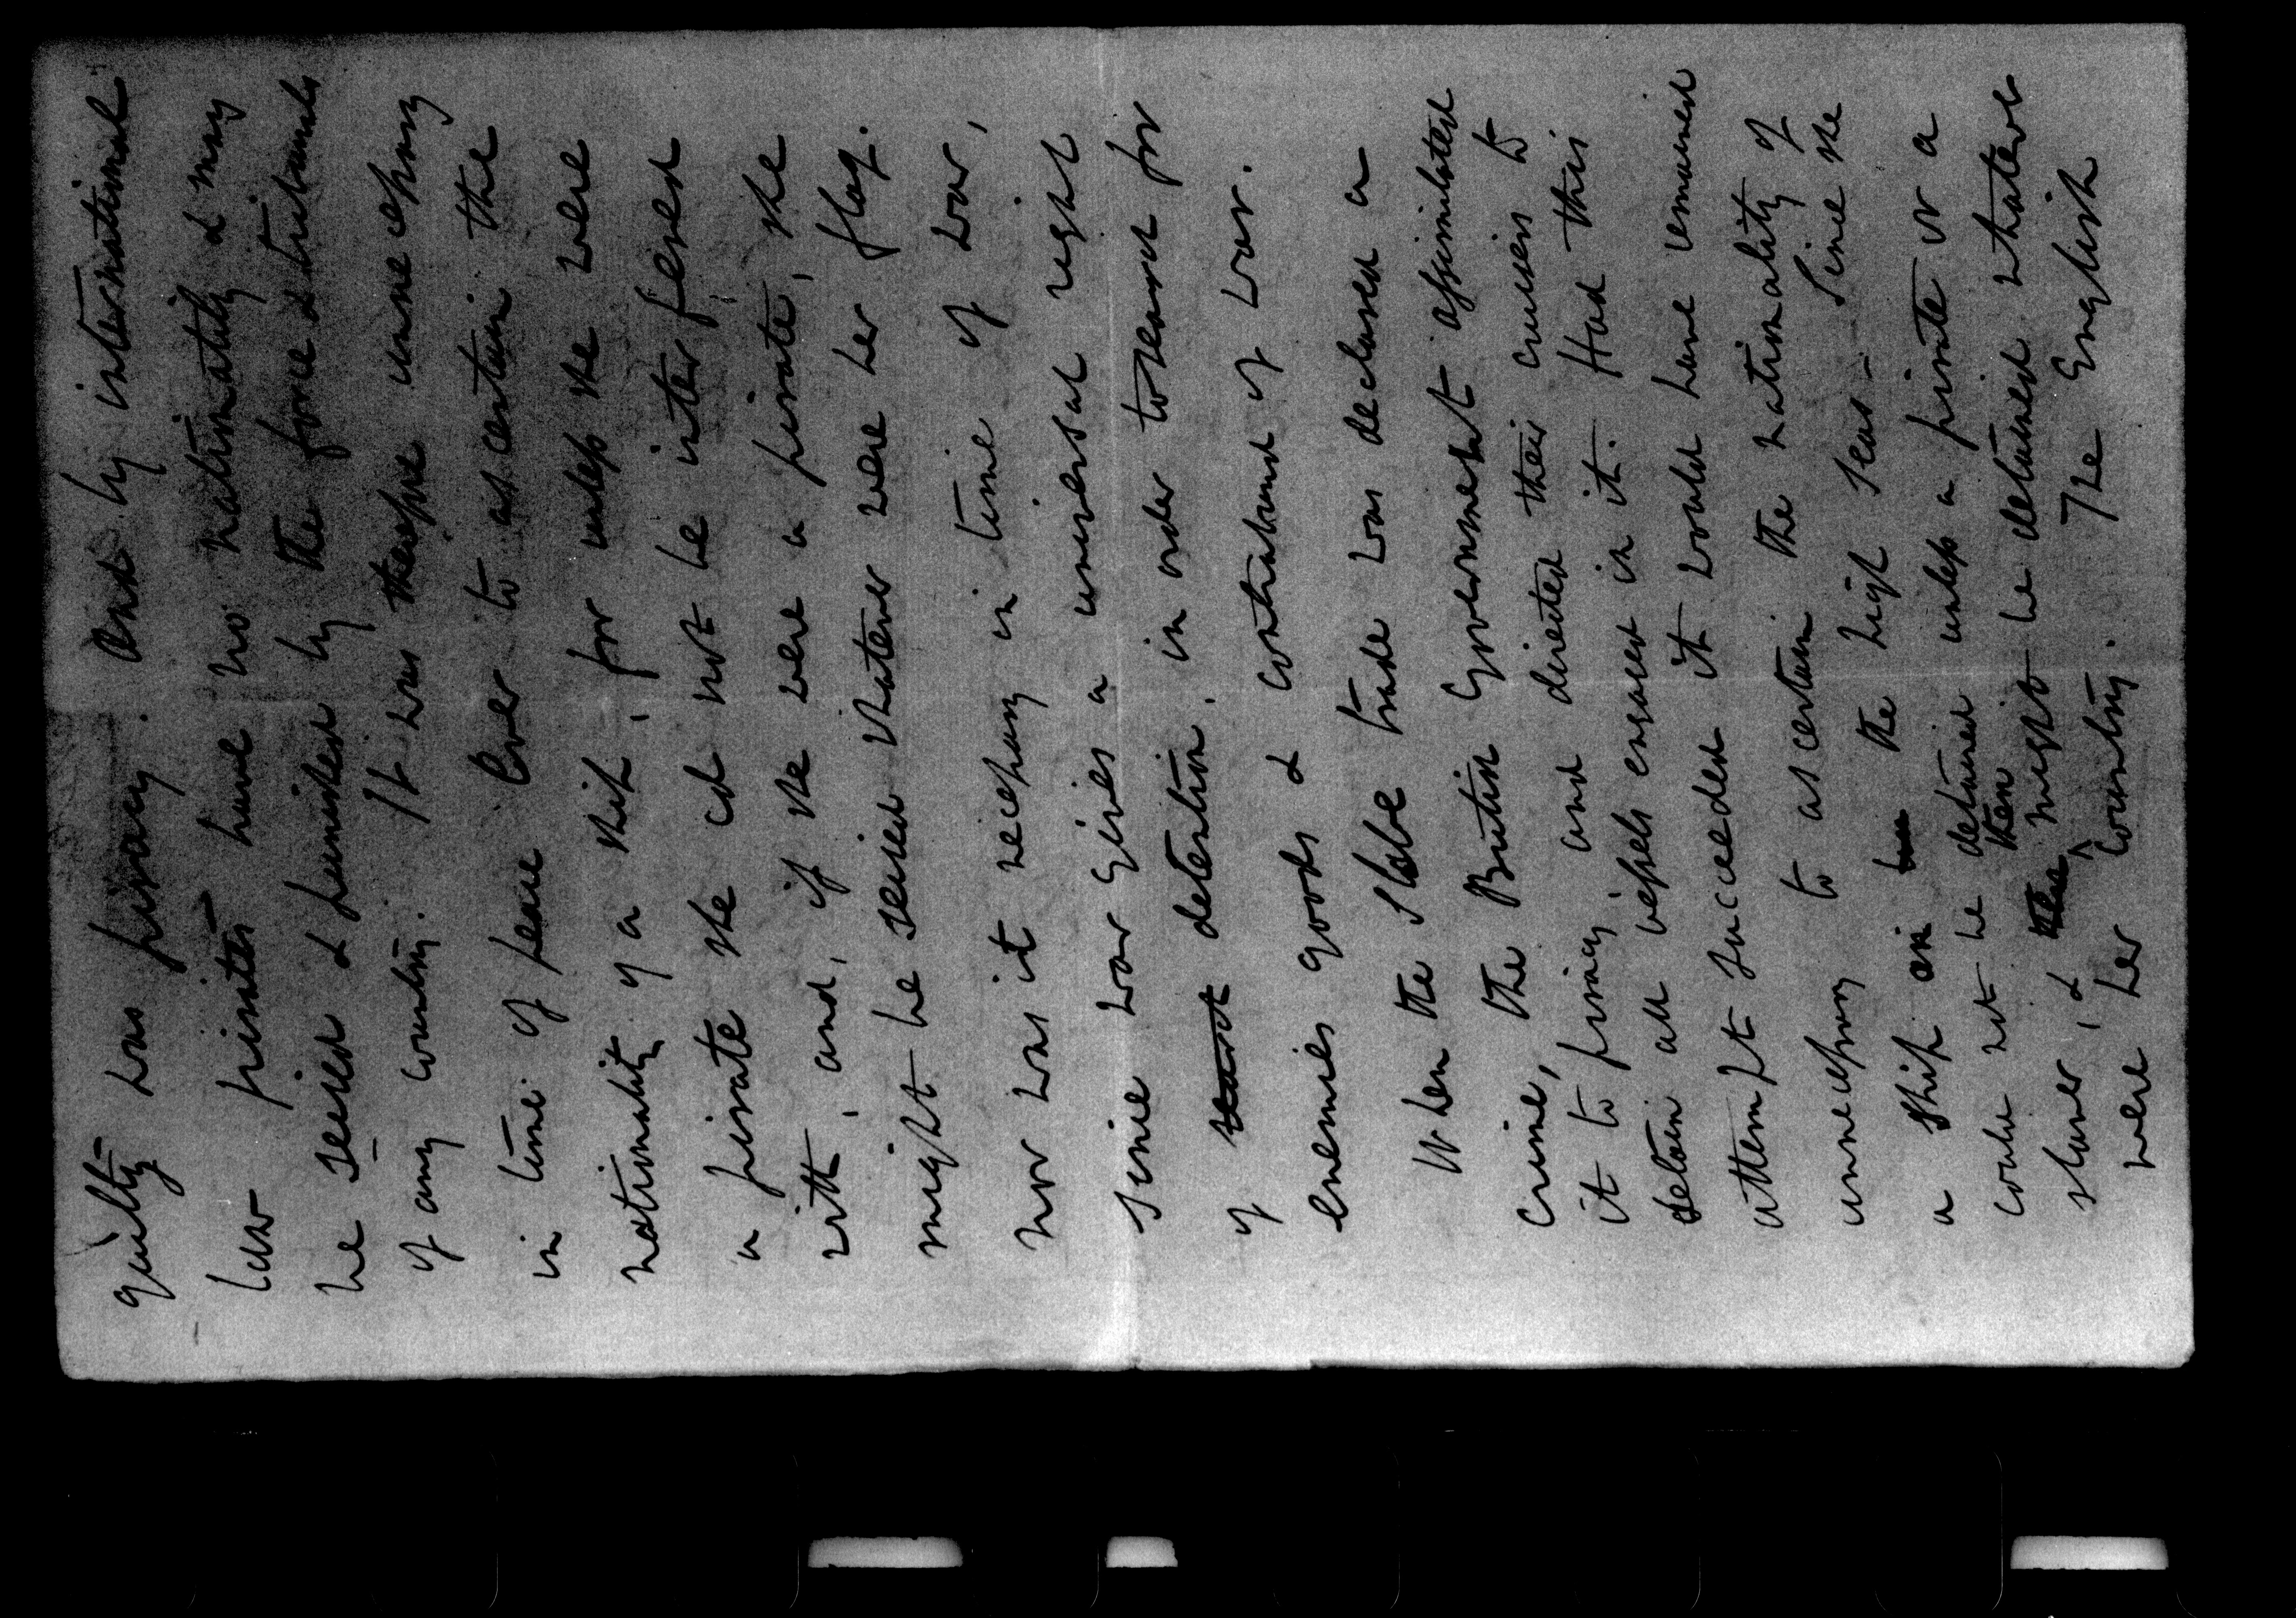 guilty was piracy. And by international
law pirates have no nationality & may
be seized & punished by the force & tribunals
of any country. It was therefore unnecessary
in time of peace ever to ascertain the
nationality of a ship, for unless she were
a pirate she cd not be interfered
with, and, if she were a pirate, she
might be seized whatever were her flag.
nor was it necessary in time of war,
since war gives a universal right
of search detention, in order to search for
enemies goods & contraband of war.
When the Slave trade was declared a
crime, the British Government assimilated
it to piracy and directed their cruisers to
detain all vessels engaged in it. Had this
attempt succeeded it would have remained
unnecessary to ascertain the nationality of
a ship on the high seas - since she
could not be detained unless a pirate or a
slaver, & then might be detained whatever
were her country. The English